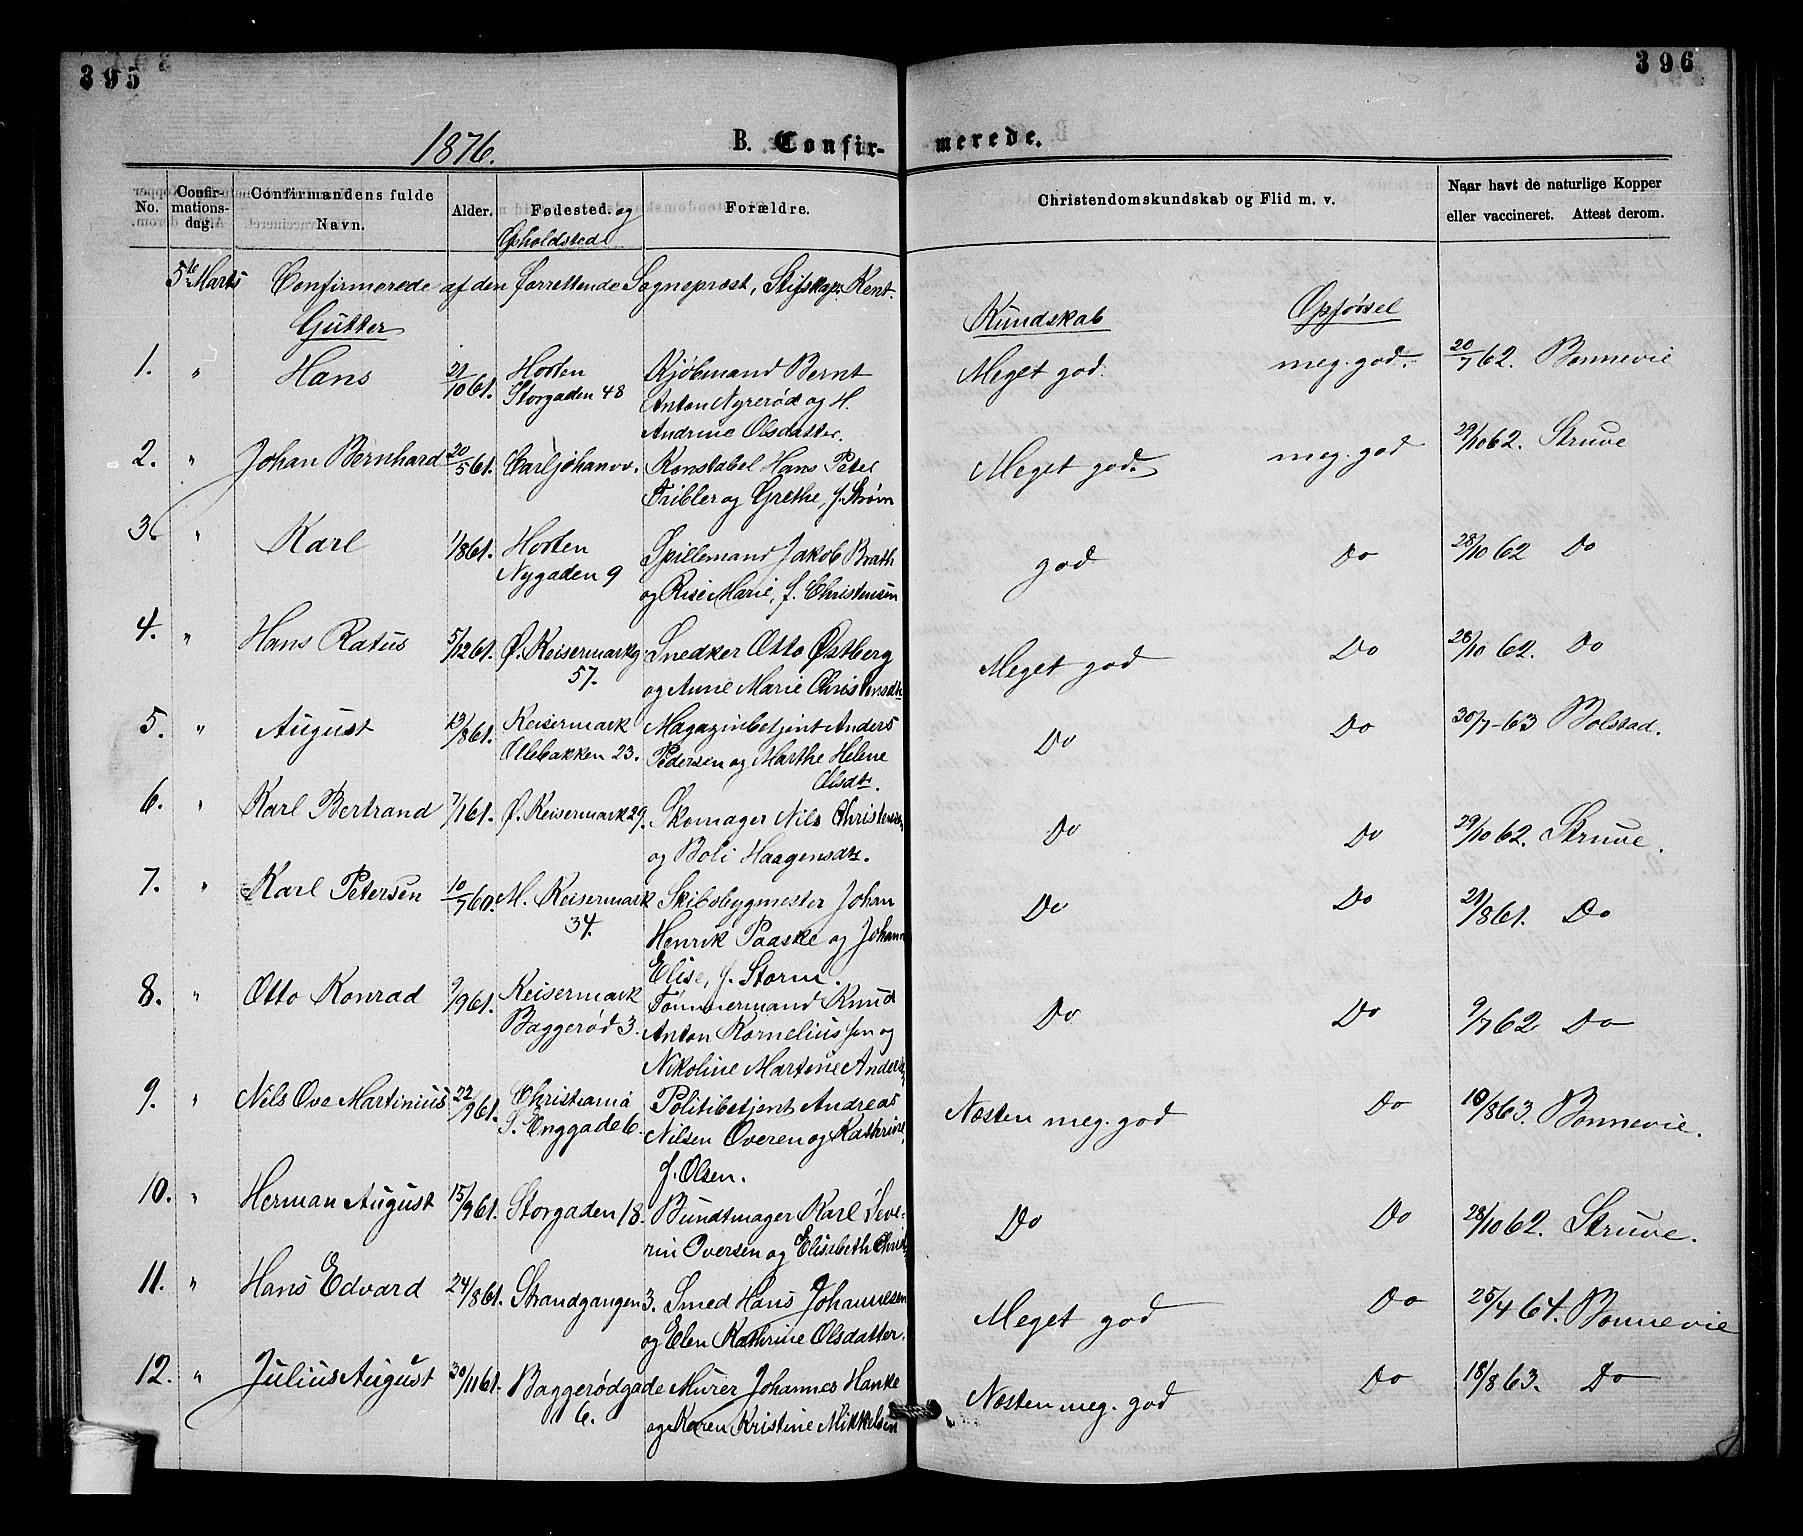 395
396
1876.
B. Confir-
merede.
No.
Confir-
mations-
dag.
Confirmandens fulde
Navn.
Alder.
Fødested. og
Opholdsted
Forældre.
Christendomskundskab og Flid m. v.
Naar havt de naturlige Kopper
eller vaccineret. Attest derom.
5te Marts Confirmerede af den forrettende Sogneprest, Stiftskap. Kent.
Gutter
Kundskab Opførsel
1. " Hans 21/10 61. Horten Kjøbmand Bernt Meget god. meg. god. 20/7 62. Bonnevie
Storgaden 48 Anton Nyrerød og H.
Andrine Olsdatter.
2. " Johan Bernhard 20/5 61. Carljohansv. Konstabel Hans Peter Meget god. meg. god 29/10 62. Struve
Tribler og Grethe, f. Strøm
3. " Karl 1/8 61. Horten Spillemand Jakob Brath god Do 28/10 62 Do
Nygaden 9 og Rise Marie, f. Christensen
4. " Hans Ratus 5/12 61. Ø. Keisermarkg Snedker Otto Østberg Meget god Do 28/10 62. Do
57. og Anne Marie Christensdtr
5. " August 13/8 61. Keisermark Magazinbetjent Anders Do Do 30/7-63 Bolstad.
Ollebakken 23. Pedersen og Marthe Helene
Olsdtr.
6. " Karl Bertrand 7/1 61. Ø. Keisermark 29. Skomager Nils Christensen Do Do 29/10 62. Struve.
og Boli Haagensdtr.
7. " Karl Petersen 10/7 60. M. Keisermark Skibsbygmester Johan Do Do 21/8 61. Do
34. Henrik Paaske og Johann
Elise, f. Storm.
8. " Otto Konrad 9/9 61. Keisermark Tømmermand Knud Do Do 9/7 62 Do
Baggerød 3. Anton Korneliussen og
Nikoline Martine Anders
9. " Nils Ove Martinius 22/9 61. Christiania Politibetjent Andreas Næsten meg. god Do 10/8 63. Bonnevie.
S. Enggade 6. Nilsen Overen og Kathrine,
f. Olsen.
10. " Herman August 15/9 61. Storgaden 18. Bundtmager Karl Seve- Do Do 28/10 62. Struve.
rin Iversen og Elisebeth Christ
11. " Hans Edvard 24/8 61. Strandgangen 3. Smed Hans Johannesen Meget god Do 25/4 64. Bonnevie
og Elen Kathrine Olsdatter.
12. " Julius August 30/11 61. Baggerødgade Murer Johannes Hanke Næsten meg. god Do 18/8 63. Do
6. og Karen Kristine Mikkelsen